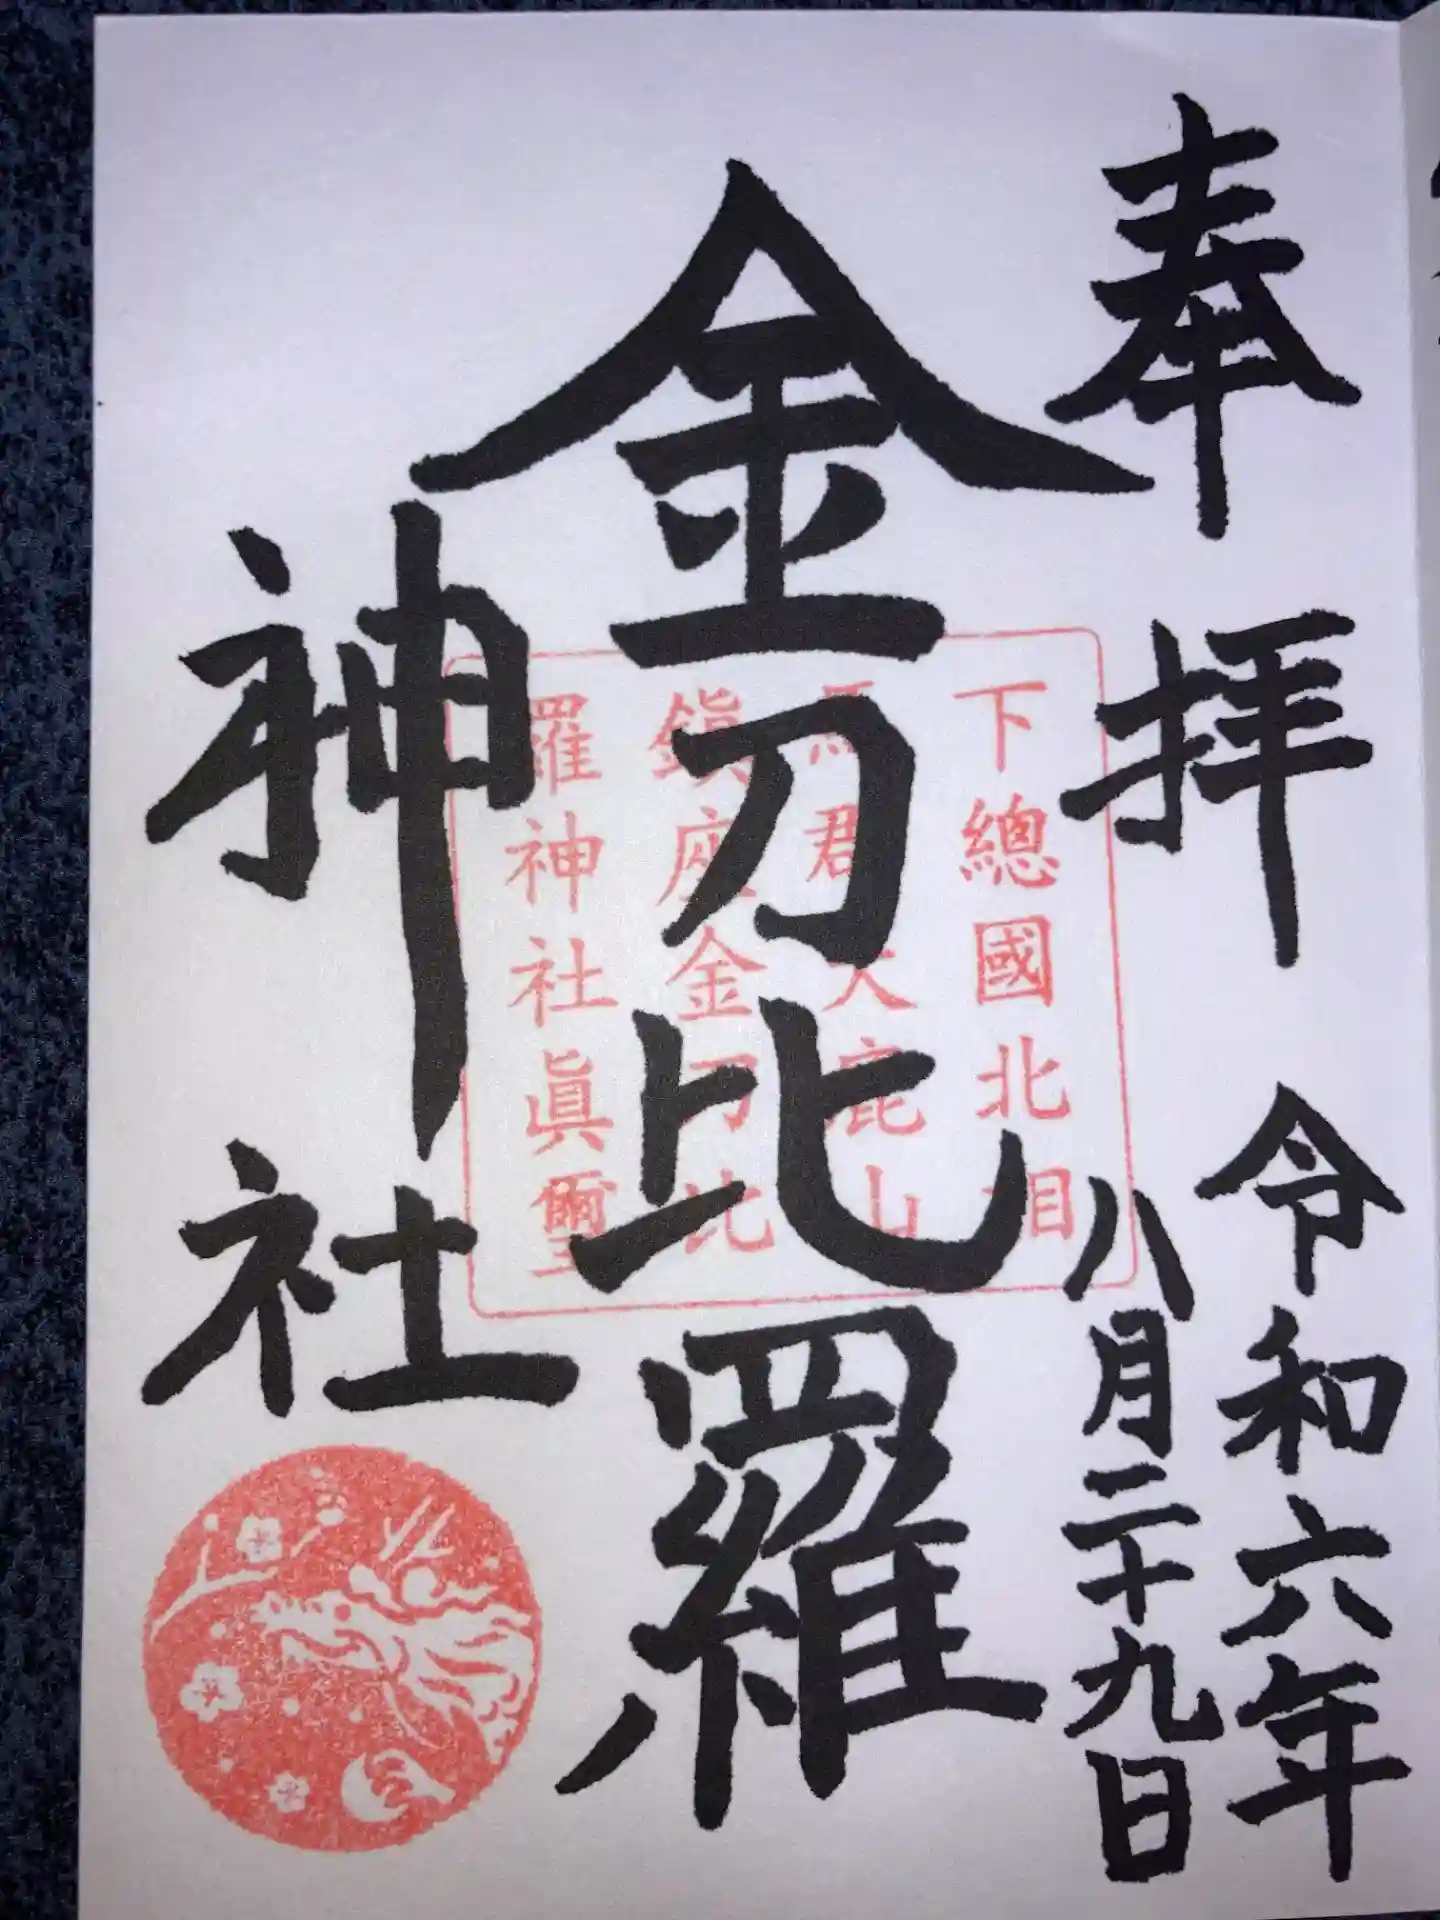 奉拝
令和六年
八月二十九日
金刀比羅
神社
下總國北相
馬郡大鹿山
鎭座金刀比
羅神社眞璽